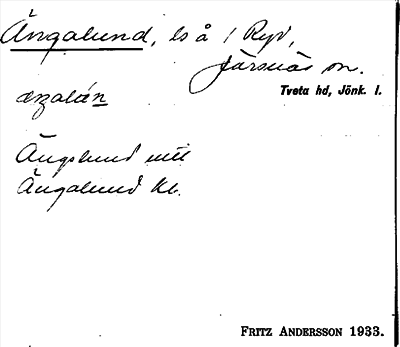 Ängalund, ls å 1 Ryd,
Järsnäs sn.
Tveta hd, Jönk. l.
æŋalún
Ängslund mtl
Ängalund kb.
FRITZ ANDERSSON 1933.